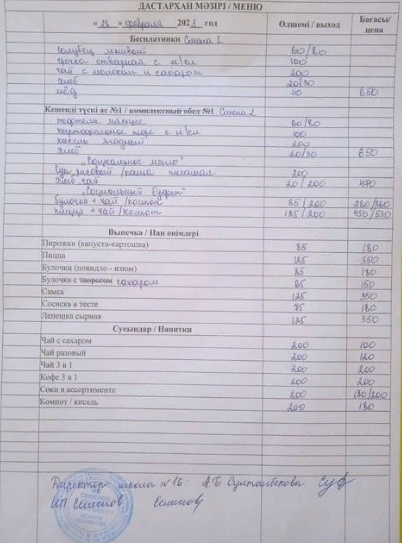 ДАСТАРХАН МӘЗІРІ / МЕНЮ
« » февраля 202 год Өлшемі / выход Бағасы/ цена
Бесплатники Смена 2
60/80
гречка отварная с м/сл 100
чай с молоком и сахаром 200
хлеб 20/30
мёд 10 650
Кешенді түскі ас №1 / комплексный обед №1 Смена 2
тефтели мясные 60/30
картофельное пюре с м/сл 100
кисель ягодный 200
хлеб 20/30 650
"Социальное меню"
Суп рисовый / каша пшенная 200
хлеб чай 20/200 470
"Социальный буфет"
булочка + чай /компот 85/200 280/360
пицца + чай /компот 125/200 450/530
Выпечка / Нан өнімдері
Пирожки (капуста-картошка) 85 180
Пицца 125 350
Булочки (повидло - изюм) 85 180
Булочка с творогом сахаром 85 160
Самса 125 350
Сосиска в тесте 75 180
Лепешка сырная 125 350
Сусындар / Напитки
Чай с сахаром 200 100
Чай разовый 200 120
Чай 3 в 1 200 200
Кофе 3 в 1 200 200
Соки в ассортименте 200 180/200
Компот / кисель 200 180
Директор школы №16: А.Б. Султанбекова
ИП Семенов Семенов